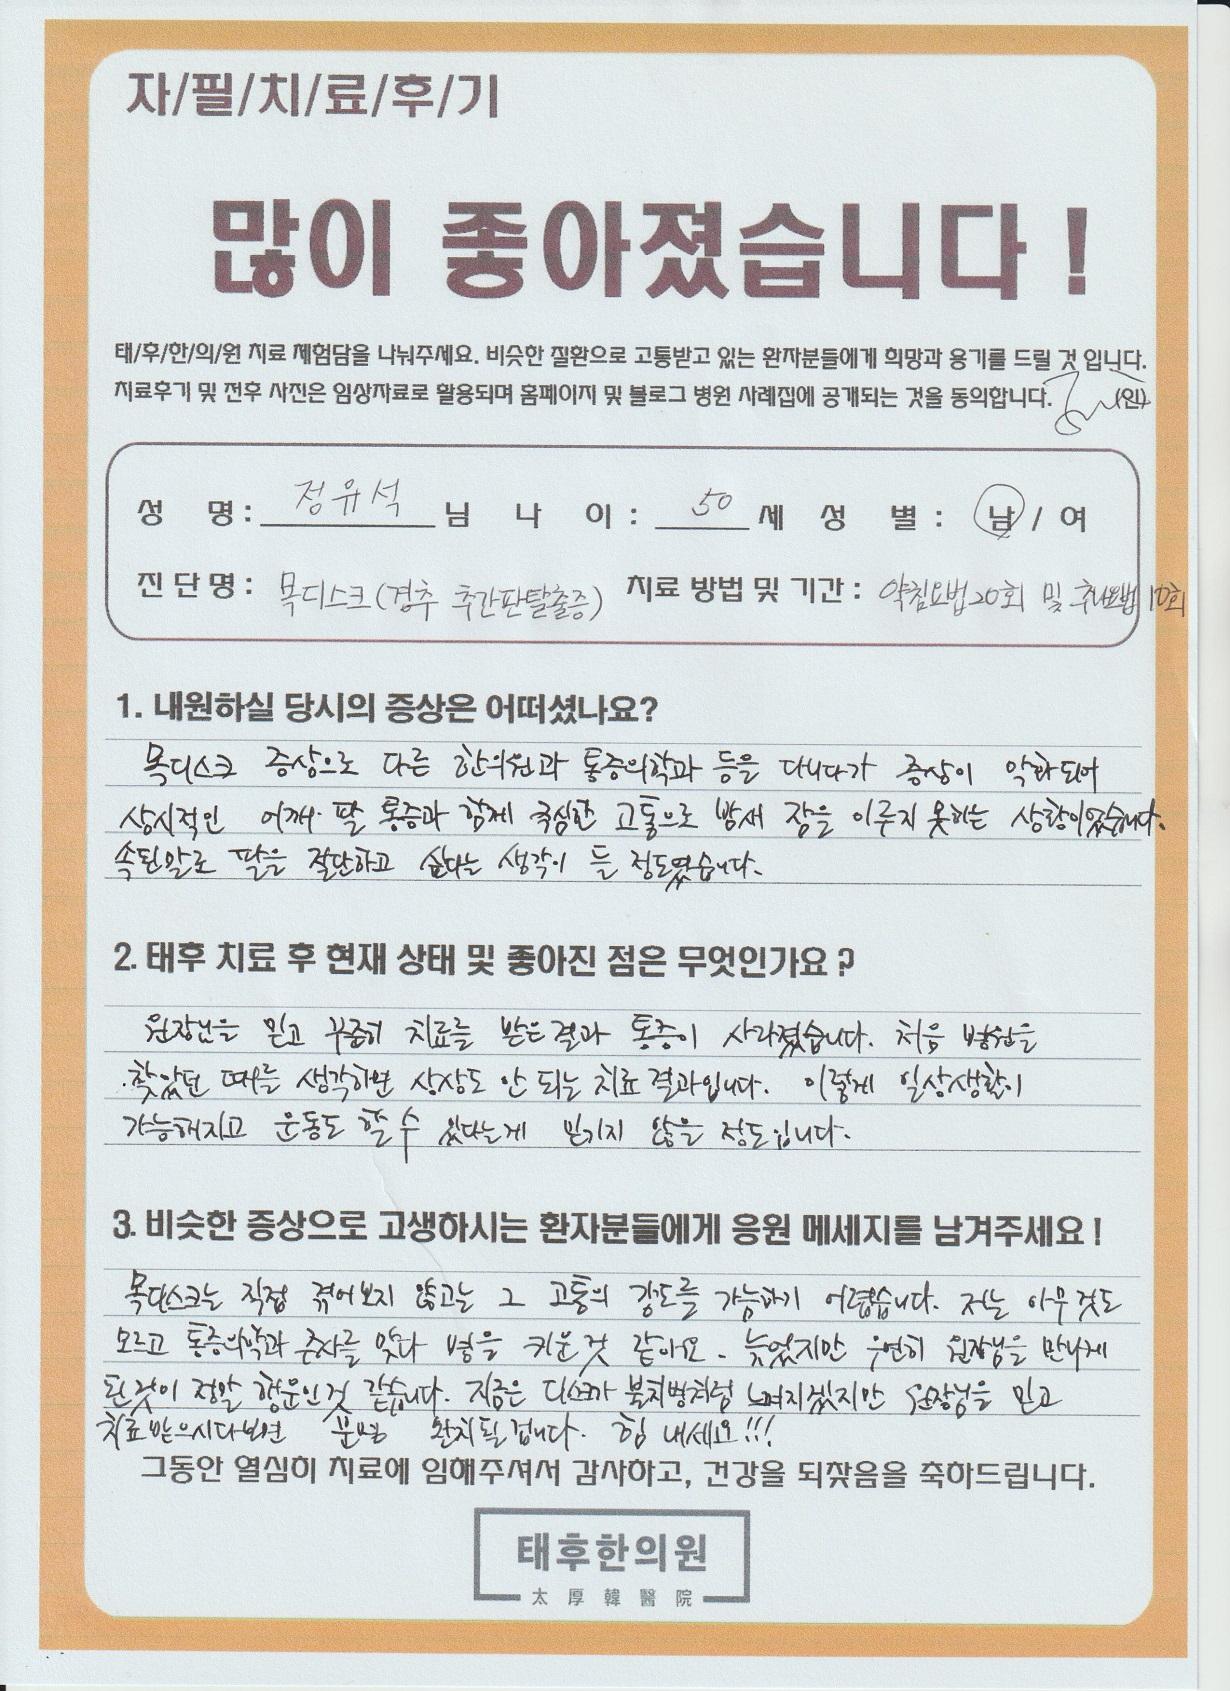 자/필/치/료/후/기
많이 좋아졌습니다!
태/후/한/의/원 치료 체험담을 나눠주세요. 비슷한 질환으로 고통받고 있는 환자분들에게 희망과 용기를 드릴 것 입니다.
치료후기 및 전후 사진은 임상자료로 활용되며 홈페이지 및 블로그 병원 사례집에 공개되는 것을 동의합니다. (인)
성 명: 정유석 님 나 이: 50 세 성 별: 남/여
진단명: 목디스크(경추 추간판탈출증) 치료 방법 및 기간: 약침요법20회 및 추나요법 10회
1. 내원하실 당시의 증상은 어떠셨나요?
목디스크 증상으로 다른 한의원과 통증의학과 등을 다니다가 증상이 악화되어
상시적인 어깨·팔 통증과 함께 극심한 고통으로 밤새 잠을 이루지 못하는 상황이었습니다.
속된말로 팔을 절단하고 싶다는 생각이 들 정도였습니다.
2. 태후 치료 후 현재 상태 및 좋아진 점은 무엇인가요?
원장님을 믿고 꾸준히 치료를 받은 결과 통증이 사라졌습니다. 처음 병원을
찾았던 때를 생각하면 상상도 안 되는 치료 결과입니다. 이렇게 일상생활이
가능해지고 운동도 할 수 있다는게 믿기지 않을 정도입니다.
3. 비슷한 증상으로 고생하시는 환자분들에게 응원 메세지를 남겨주세요!
목디스크는 직접 겪어보지 않고는 그 고통의 강도를 가늠하기 어렵습니다. 저는 아무것도
모르고 통증의학과 주사를 맞다 병을 키운것 같아요. 늦었지만 우연히 원장님을 만나게
된것이 정말 행운인것 같습니다. 지금은 디스크가 불치병처럼 느껴지겠지만 원장님을 믿고
치료받으시다보면 분명 완치될겁니다. 힘 내세요!!!
그동안 열심히 치료에 임해주셔서 감사하고, 건강을 되찾음을 축하드립니다.
태후한의원
太厚韓醫院